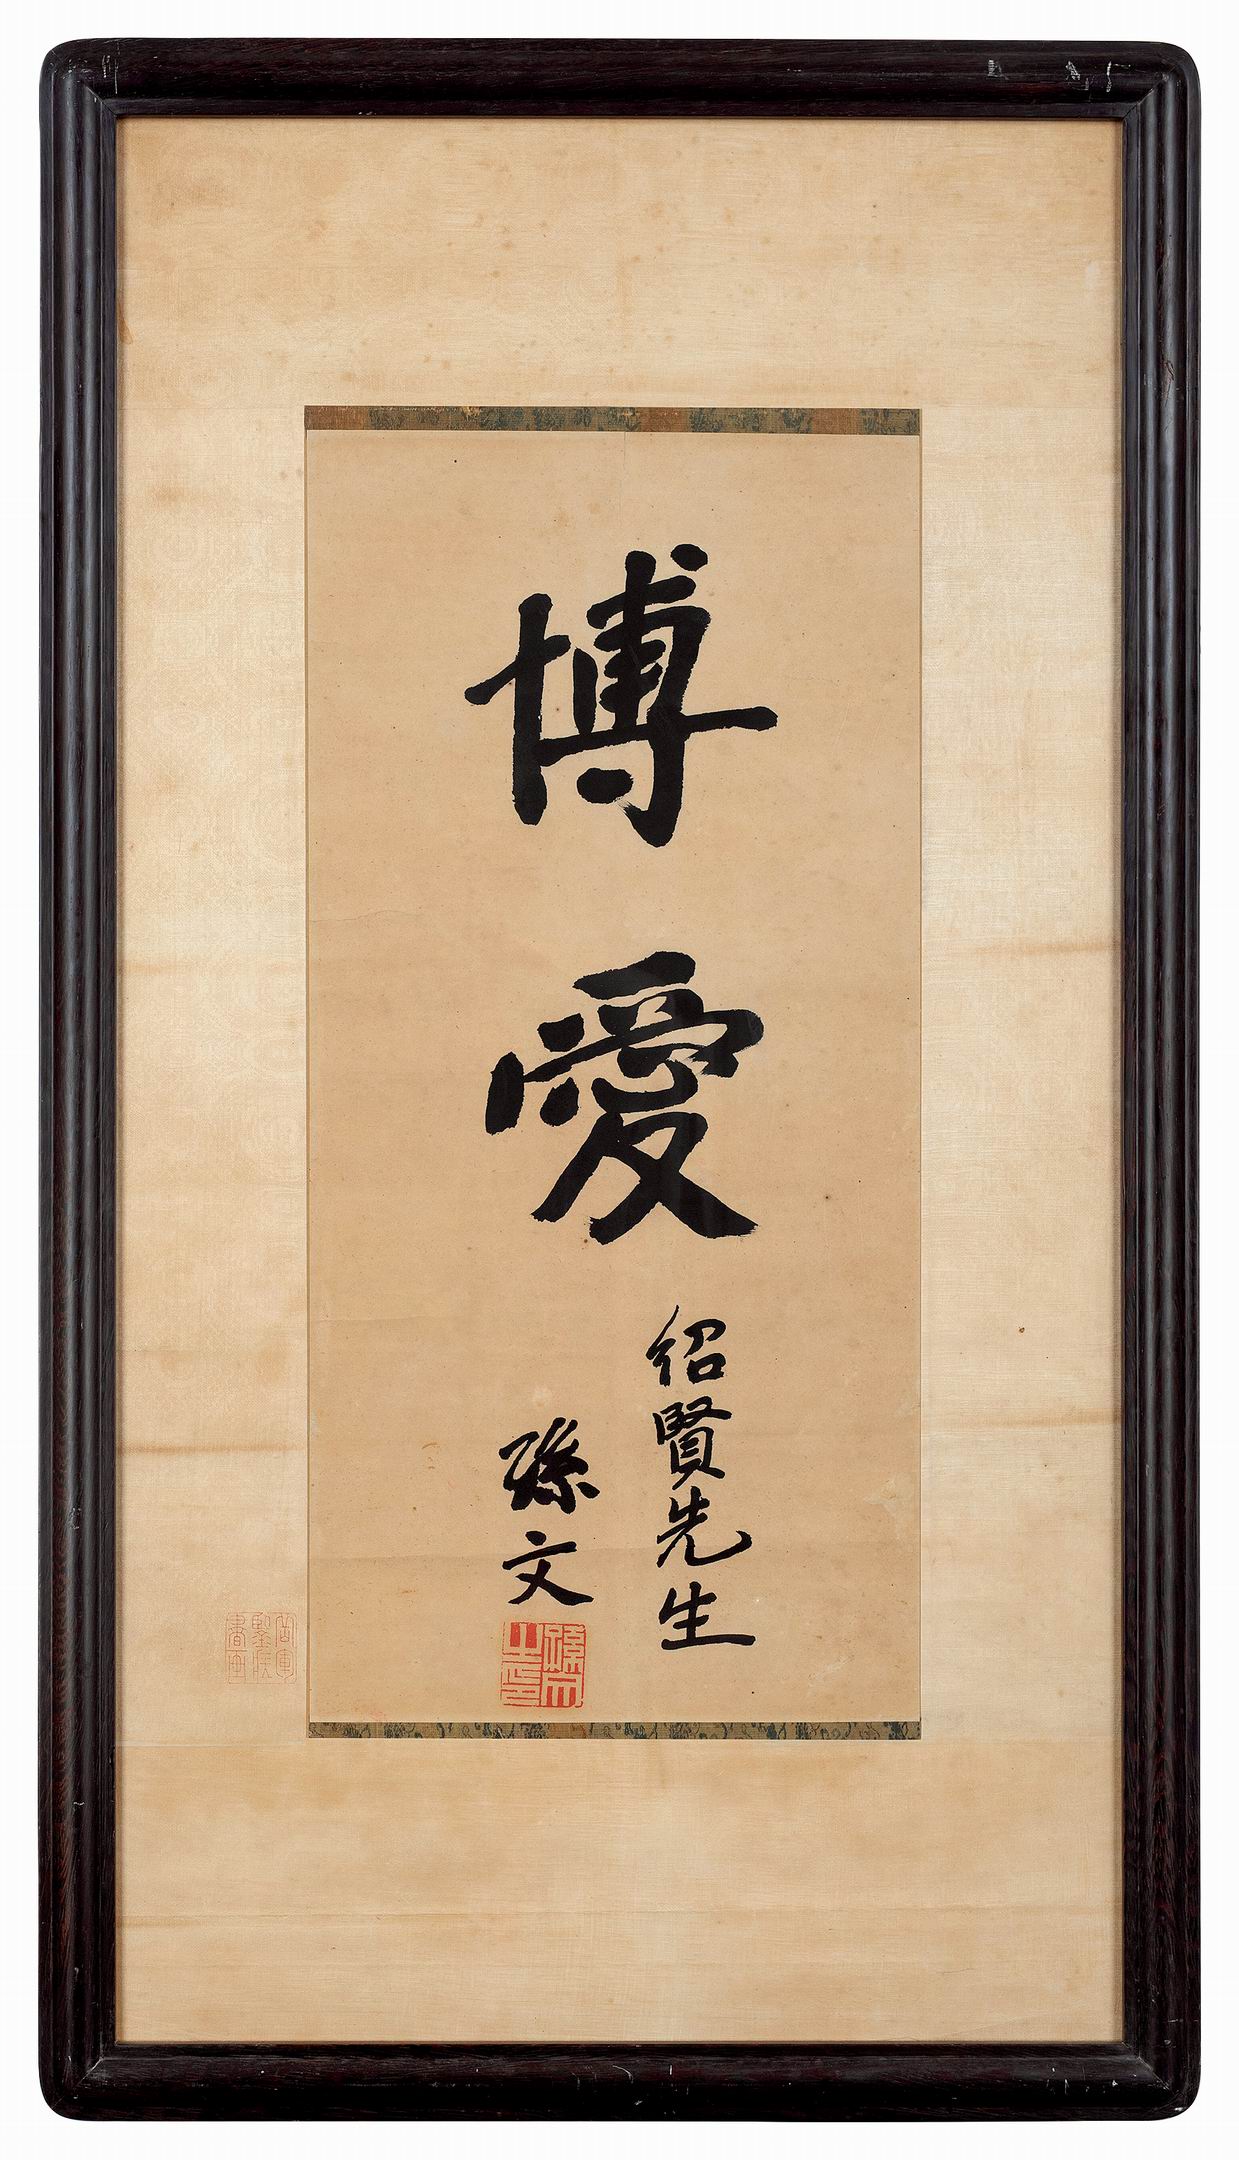 博愛
紹賢先生
孫文
孫文之印